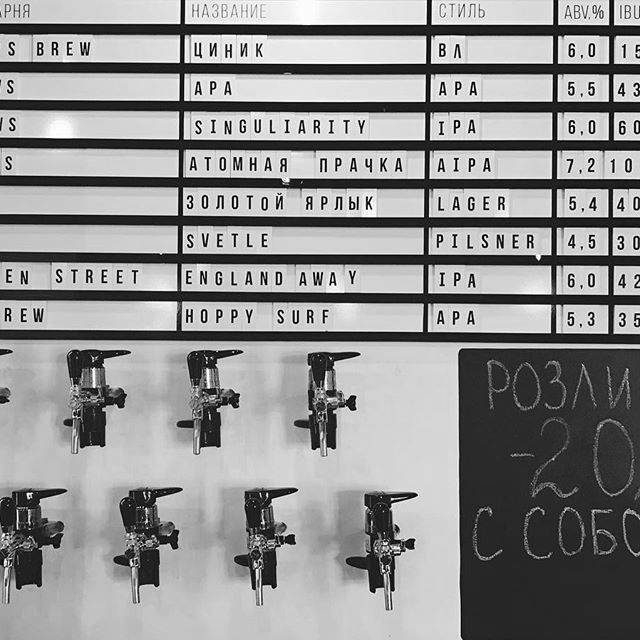 АРНЯ НАЗВАНИЕ СТИЛЬ ABV,% IBU
S BREW ЦИНИК ВЛ 6,0 15
WS APA APA 5,5 43
WS SINGULIARITY IPA 6,0 60
S АТОМНАЯ ПРАЧКА AIPA 7,2 10
ЗОЛОТОЙ ЯРЛЫК LAGER 5,4 40
SVETLE PILSNER 4,5 30
EN STREET ENGLAND AWAY IPA 6,0 42
REW HOPPY SURF APA 5,3 35
РОЗЛИ
-20
С СОБО